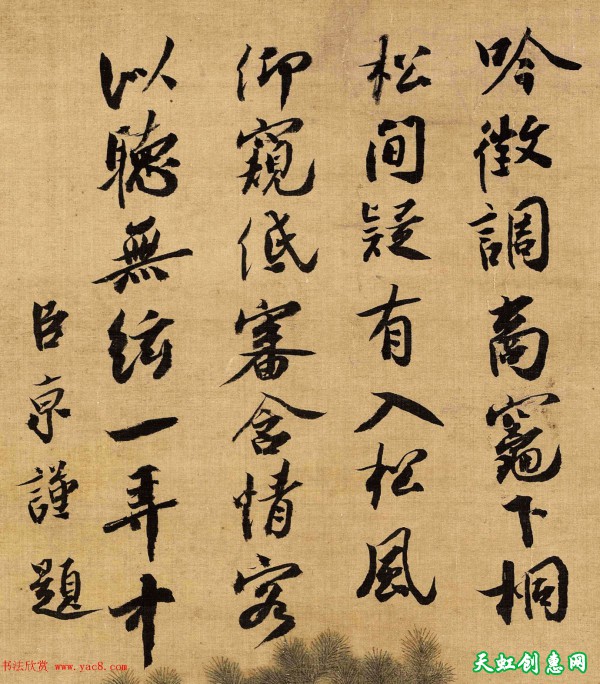 吟徵調商竈下桐
松間疑有入松風
仰窺低審含情客
似聽無絃一弄中
臣京謹題
书法欣赏 www.yac8.com
天虹创惠网